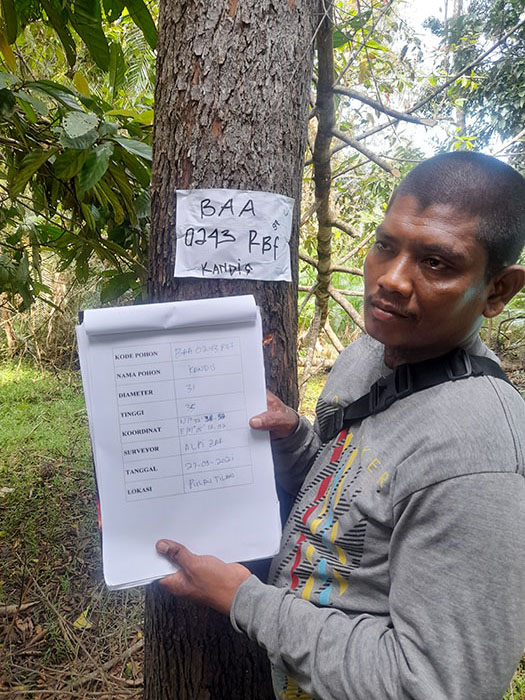 BAA
0243 RBf
KANDIS
KODE POHON BAA 0243 RBf
NAMA POHON KANDIS
DIAMETER 31
TINGGI 35
KOORDINAT
SURVEYOR
TANGGAL 27-09-2021
LOKASI PULAU TILAN